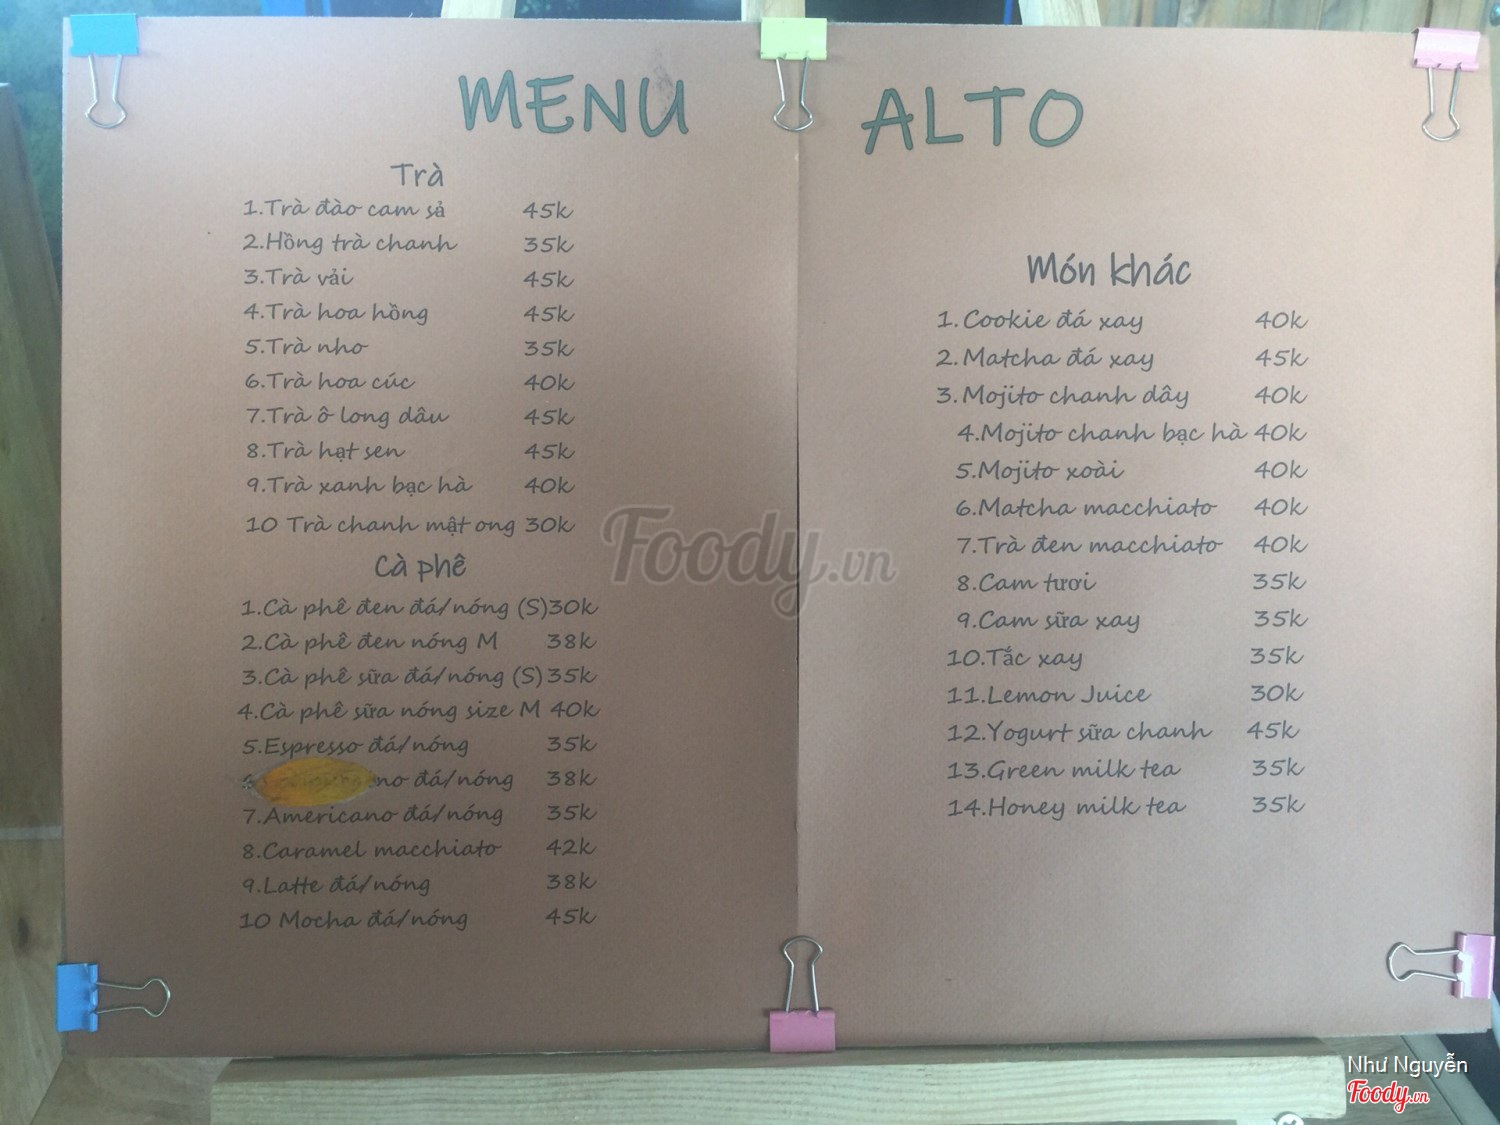 MENU ALTO
Trà
1.Trà đào cam sả 45k
2.Hồng trà chanh 35k
3.Trà vải 45k
4.Trà hoa hồng 45k
5.Trà nho 35k
6.Trà hoa cúc 40k
7.Trà ô long dâu 45k
8.Trà hạt sen 45k
9.Trà xanh bạc hà 40k
10 Trà chanh mật ong 30k
Cà phê
1.Cà phê đen đá/nóng (S)30k
2.Cà phê đen nóng M 38k
3.Cà phê sữa đá/nóng (S)35k
4.Cà phê sữa nóng size M 40k
5.Espresso đá/nóng 35k
đá/nóng 38k
7.Americano đá/nóng 35k
8.Caramel macchiato 42k
9.Latte đá/nóng 38k
10 Mocha đá/nóng 45k
Món khác
1.Cookie đá xay 40k
2.Matcha đá xay 45k
3.Mojito chanh dây 40k
4.Mojito chanh bạc hà 40k
5.Mojito xoài 40k
6.Matcha macchiato 40k
7.Trà đen macchiato 40k
8.Cam tươi 35k
9.Cam sữa xay 35k
10.Tắc xay 35k
11.Lemon Juice 30k
12.Yogurt sữa chanh 45k
13.Green milk tea 35k
14.Honey milk tea 35k
Foody.vn
Như Nguyễn
Foody.vn